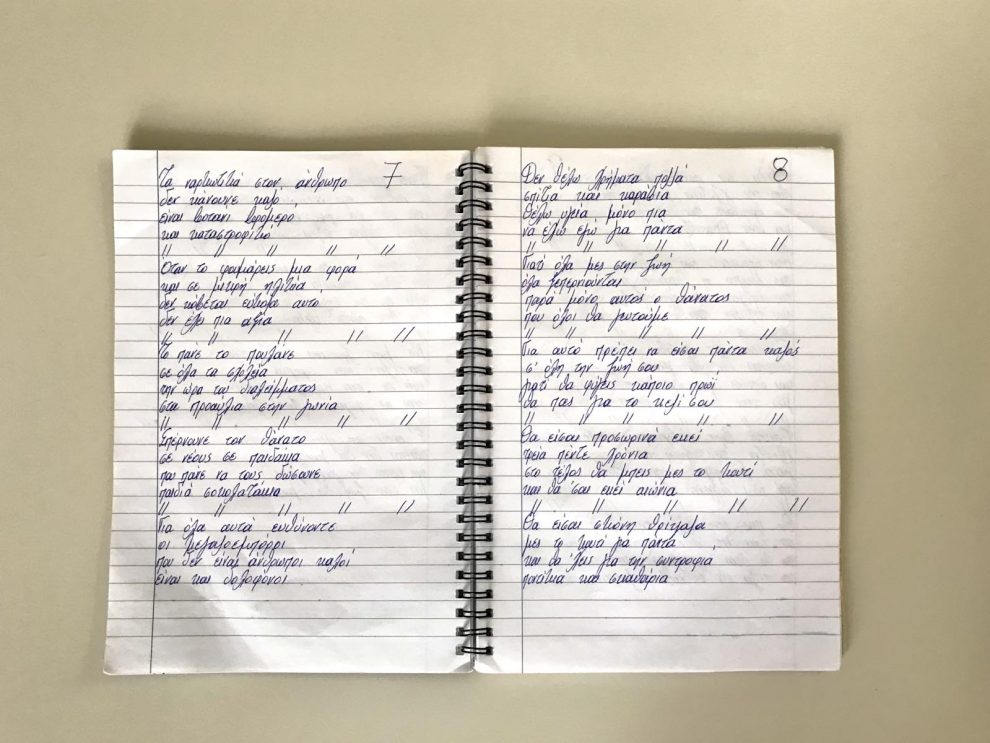 7
Τα ναρκωτικά στον άνθρωπο
δεν κάνουνε καλό
είναι βοτάνι βρόμερο
και καταστροφικό
// // // // //
Όταν το φουμάρεις μια φορά
και σε μικρή ηλικία
δεν κόβεται εύκολα αυτό
δεν έχει πια αξία
// // // // //
Το πάνε το πουλάνε
σε όλα τα σχολεία
την ώρα του διαλείμματος
στα προαύλια στην γωνία
// // // // //
Σπέρνουνε τον θάνατο
σε νέους σε παιδάκια
που πάνε να τους δώσουνε
παιδιά σοκολατάκια
// // // // //
Για όλα αυτά ευθύνοντε
οι μεγαλοεμπόροι
που δεν είναι άνθρωποι καλοί
είναι και δολοφόνοι
8
Δεν θέλω χρήματα πολλά
σπίτια και καράβια
θέλω υγεία μόνο πια
να έχω εγώ για πάντα
// // // // //
Γιατί όλα μες στην ζωή
όλα ξεπερνιούνται
παρά μόνο αυτός ο θάνατος
που όλοι θα
// // // // //
Για αυτό πρέπει να είσαι πάντα καλός
σ' όλη την ζωή σου
γιατί θα φύγεις κάποιο πρωί
θα πας για το κελί σου
// // // // //
Θα είσαι προσωρινά εκεί
τρεία πέντε χρόνια
στο τέλος θα μπεις μες το κουτί
και θα 'σαι εκεί αιώνια
// // // // //
Θα είσαι σκόνη θρίψαλα
μες το κουτί για πάντα
και θα 'χεις για την συντροφιά
ποντίκια και σκαθάρια